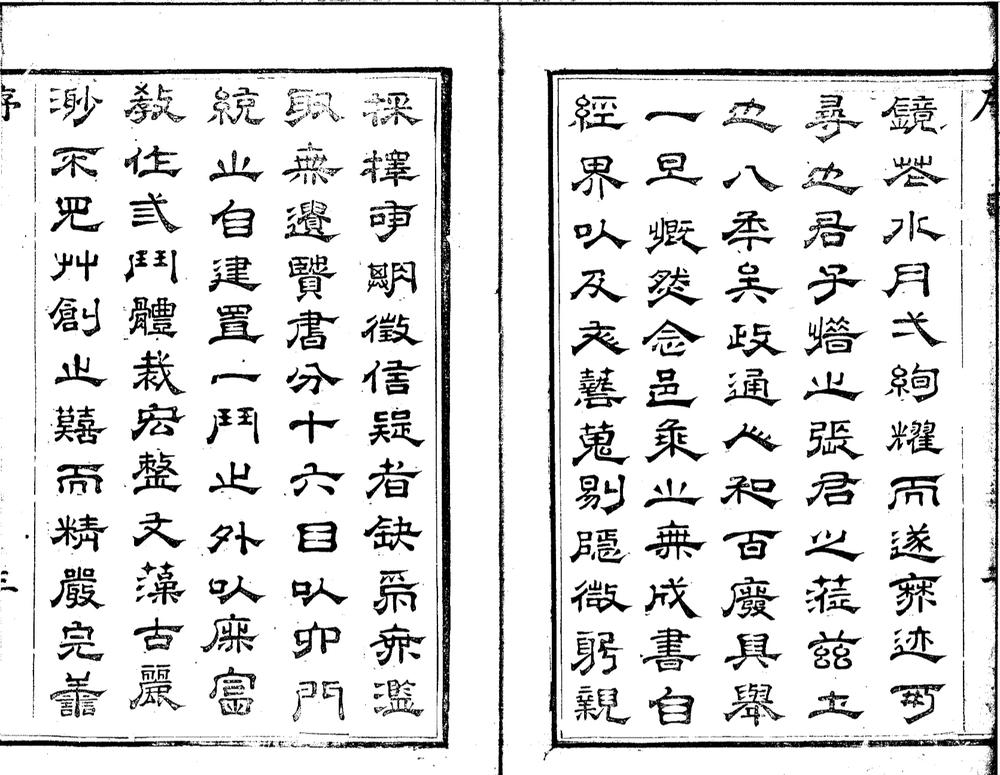 序
鏡花水月弋絢耀而遂無迹可
尋也君子惜之張君之蒞茲土
也八年矣政通人和百廢具舉
一旦慨然念邑乘之無成書自
經界以及文藝蒐剔隱微躬親
採擇事期徵信疑者缺焉無濫
取無遺賢書分十六目以卯門
統之自建置一門之外以庶富
教作弍門體裁宏整文藻古麗
渺不見艸創之囏而精嚴完善
序 三